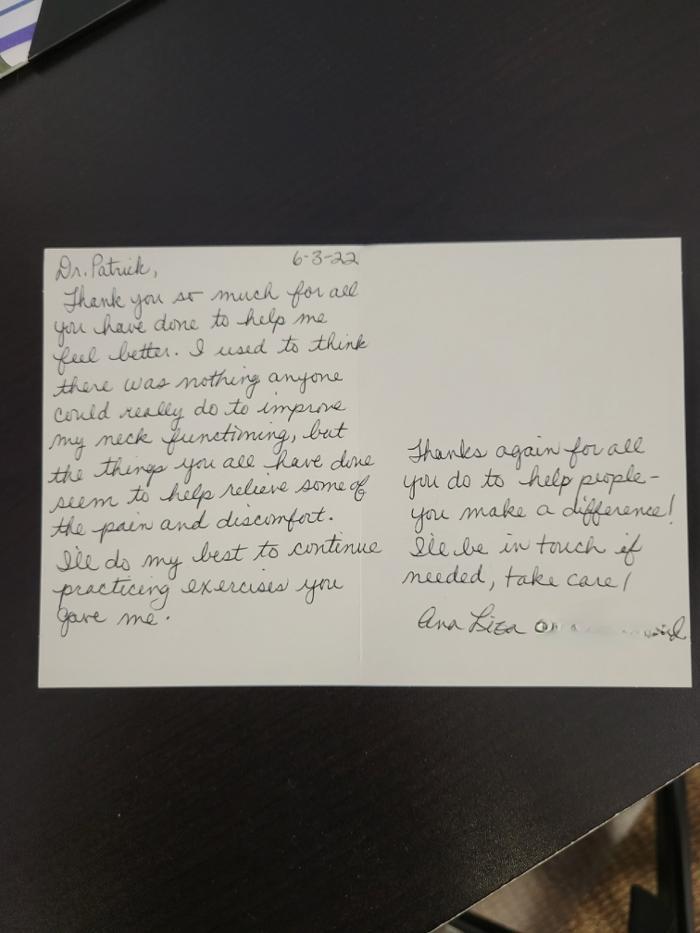 6-3-22
Dr. Patrick,
Thank you so much for all
you have done to help me
feel better. I used to think
there was nothing anyone
could really do to improve
my neck functioning, but
the things you all have done
seem to help relieve some of
the pain and discomfort.
I'll do my best to continue
practicing exercises you
gave me.
Thanks again for all
you do to help people-
you make a difference!
I'll be in touch if
needed, take care!
Ana Liza